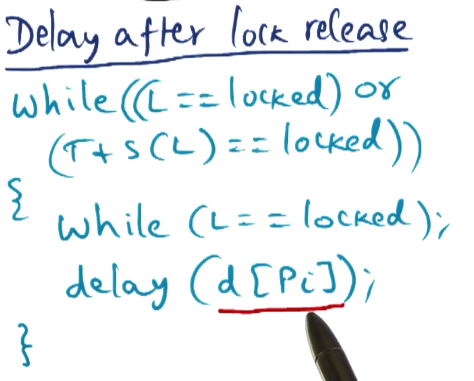 Delay after lock release
while((L == locked) or
(T+S(L) == locked))
{
while (L == locked);
delay (d[Pi]);
}